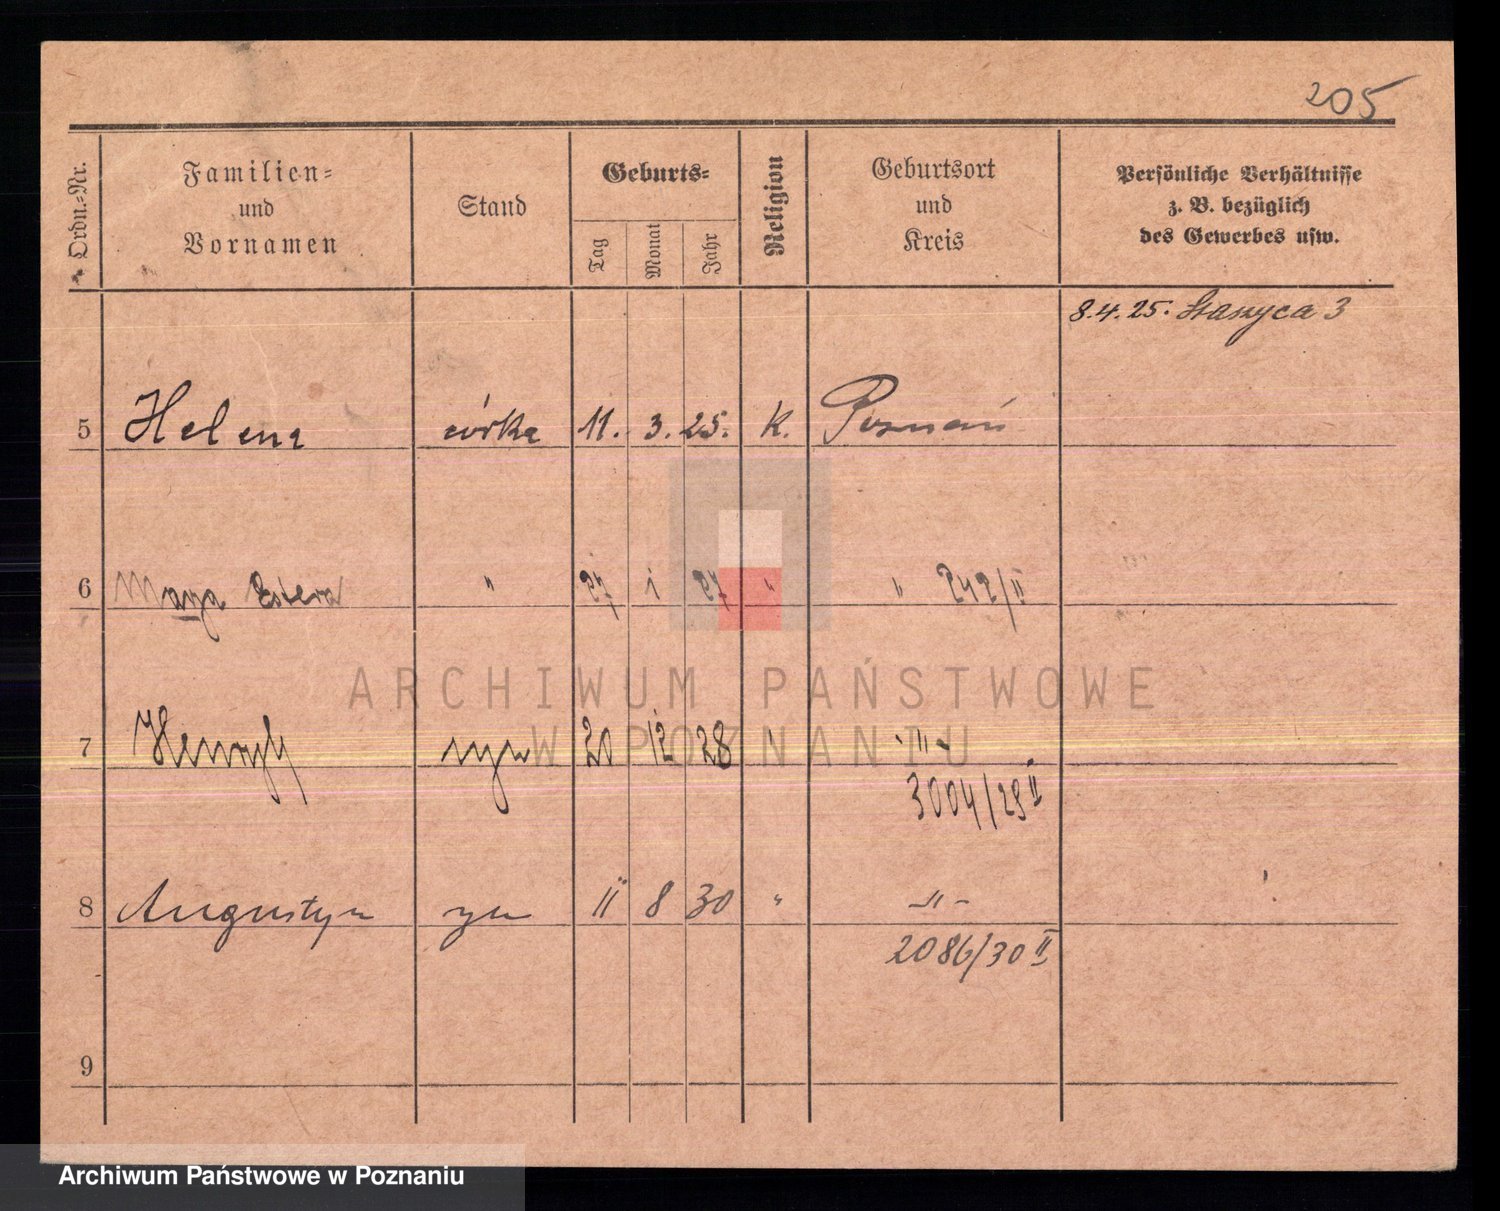 205
Ordn.-Nr.
Familien-
und
Vornamen
Stand
Geburts-
Tag
Monat
Jahr
Religion
Geburtsort
und
Kreis
Persönliche Verhältnisse
z. B. bezüglich
des Gewerbes usw.
8.4.25. Staszyca 3
5 Helena córka 11. 3. 25. k. Poznań
6 Estera " 27 1 27 " " 242/II
ARCHIWUM PAŃSTWOWE
W POZNANIU
7 Henryk syn 20 12 28 " -"-
3004/28 II
8 Augustyn syn 11 8 30 " -"-
2086/30 II
9
Archiwum Państwowe w Poznaniu